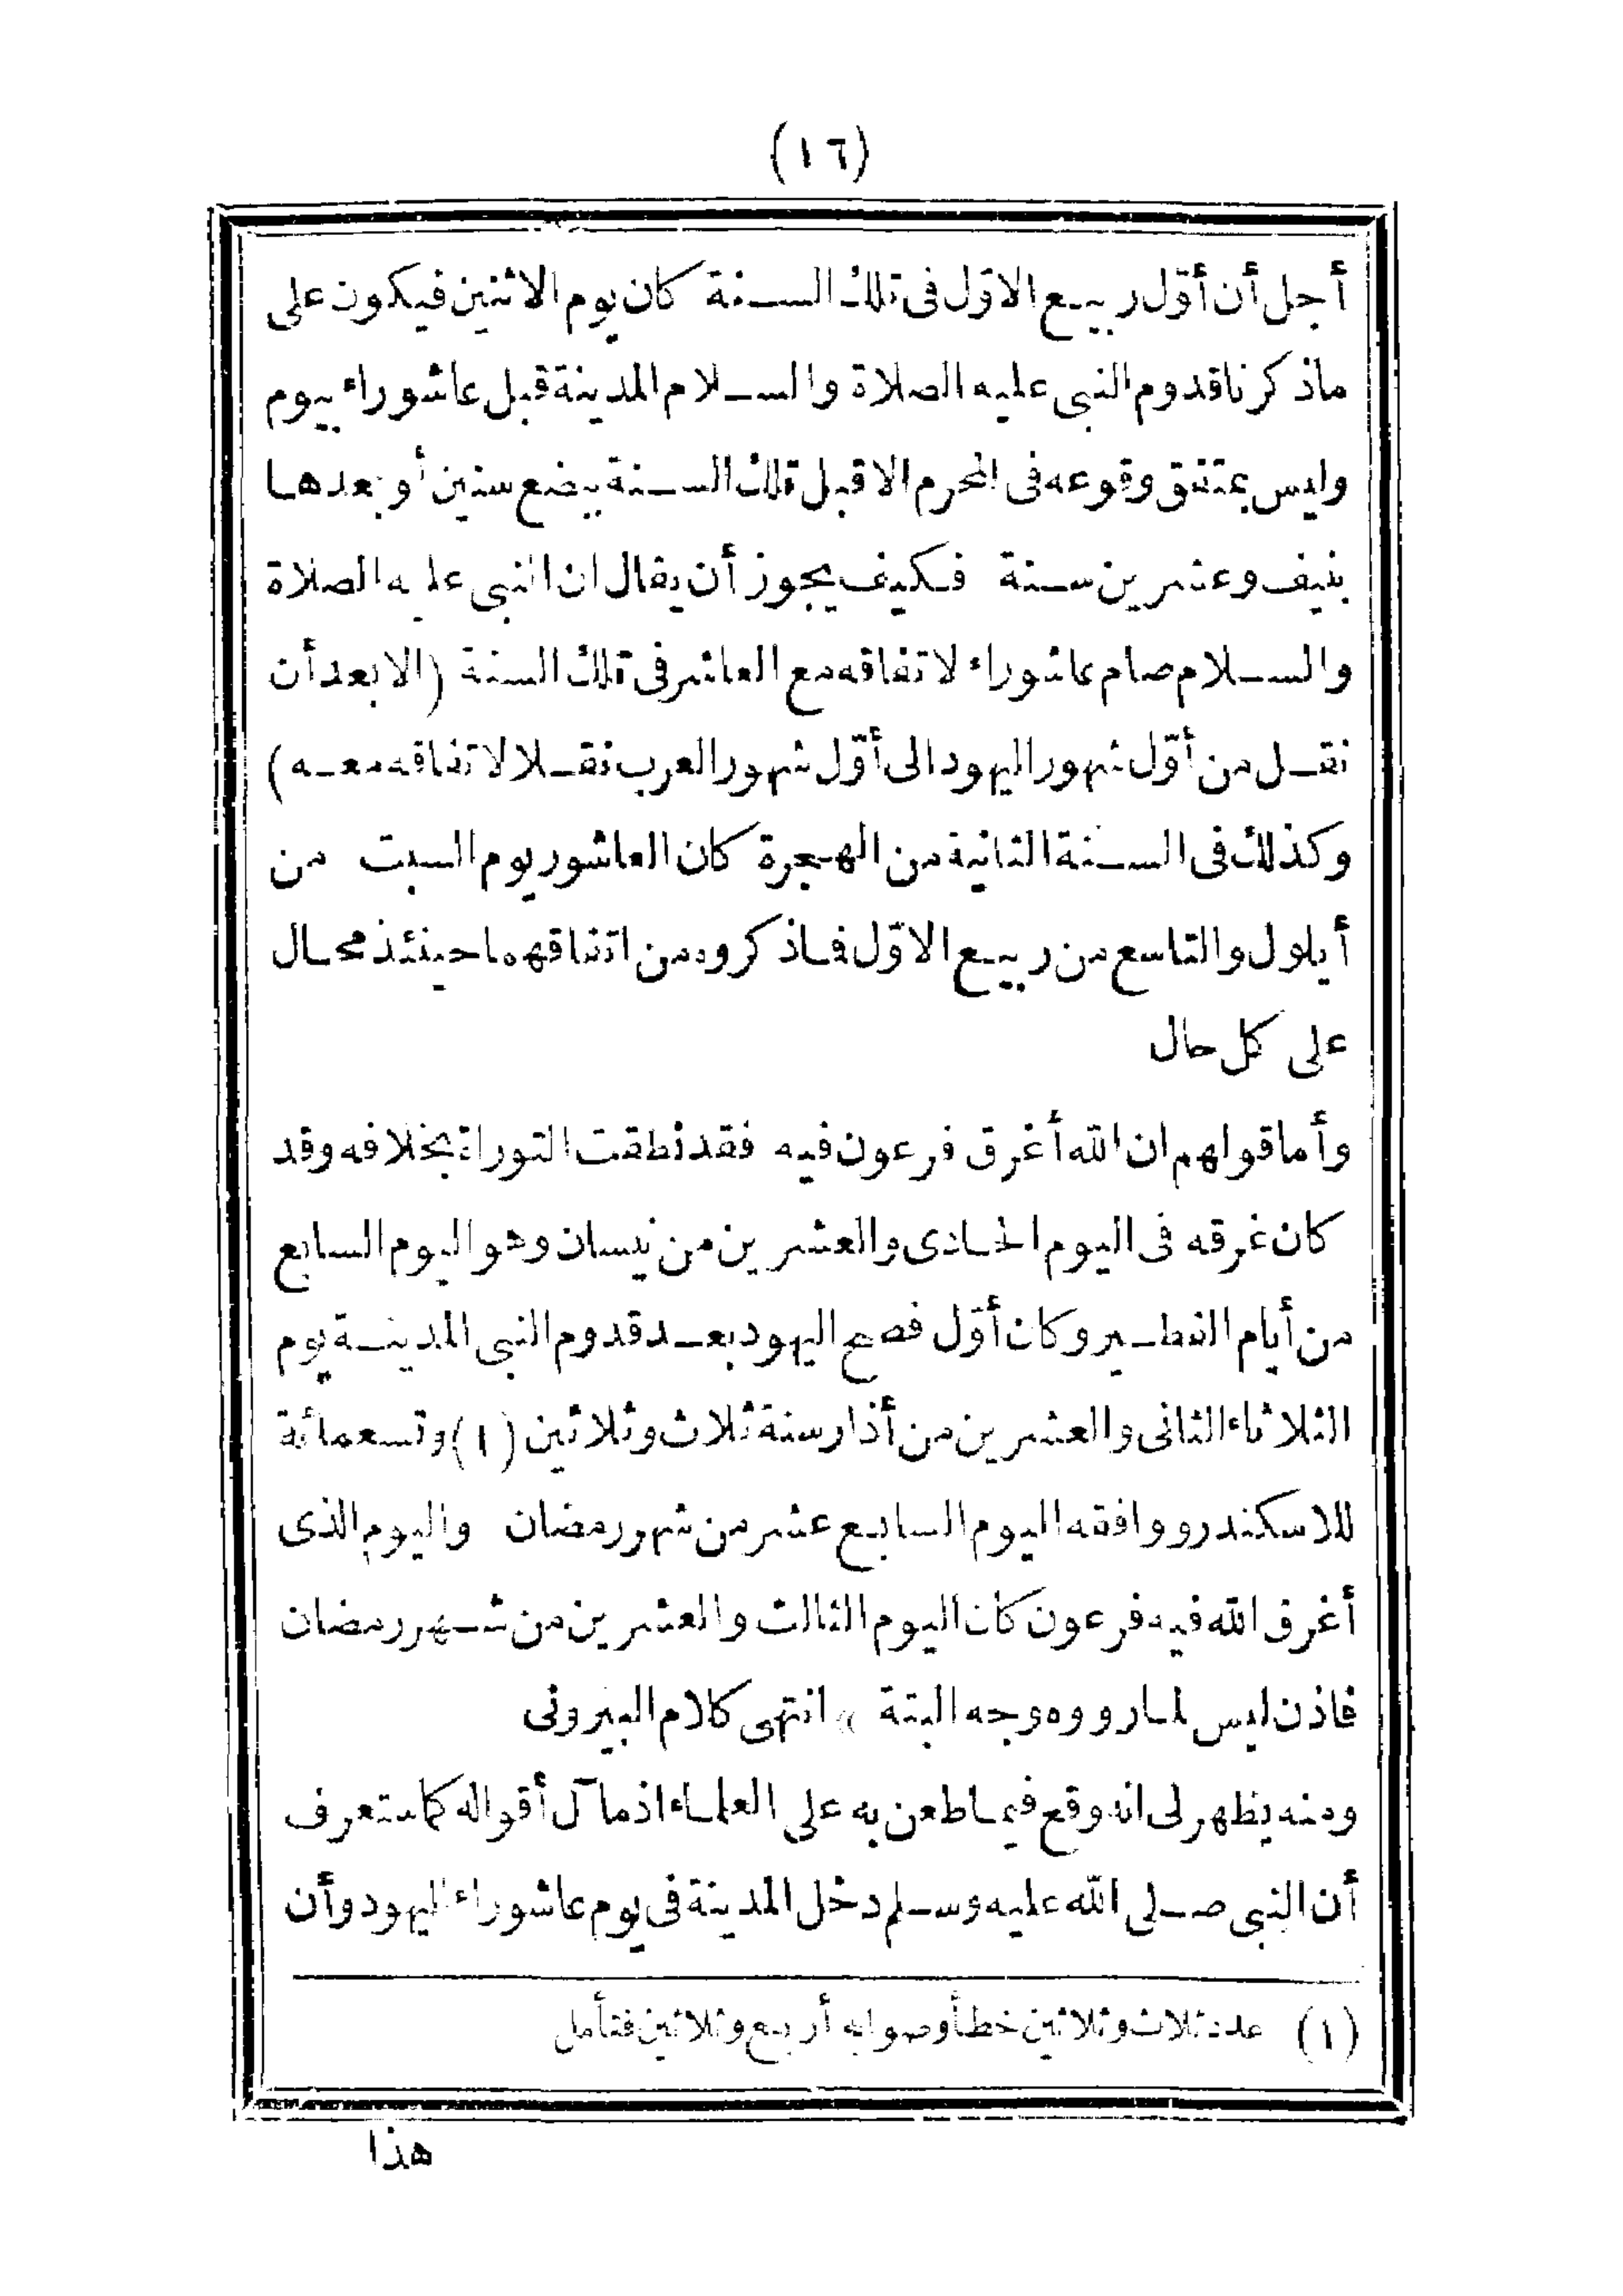 (١٦)
أجل أن أوّل ربيع الاوّل فى تلك السنة كان يوم الاثنين فيكون على
ماذكرنا قدوم النبى عليه الصلاة والسلام المدينة قبل عاشوراء بيوم
وليس بمتفق وقوعه فى المحرم الا قبل تلك السنة ببضع سنين أو بعدها
بنيف وعشرين سنة فكيف يجوز أن يقال ان النبى عليه الصلاة
والسلام صام عاشوراء لاتفاقه مع العاشر فى تلك السنة (الا بعد أن
نقل من أوّل شهور اليهود الى أوّل شهور العرب نقلا لاتفاقه معه)
وكذلك فى السنة الثانية من الهجرة كان العاشور يوم السبت من
أيلول والتاسع من ربيع الاوّل فاذكروه من اتفاقهما حينئذ محال
على كل حال
وأما قولهم ان الله أغرق فرعون فيه فقد نطقت التوراة بخلافه وقد
كان غرقه فى اليوم الحادى والعشرين من نيسان وهو اليوم السابع
من أيام الفطير وكان أوّل فصح اليهود بعد قدوم النبى المدينة يوم
الثلاثاء الثانى والعشرين من أذار سنة ثلاث وثلاثين (١) وتسعمائة
للاسكندر ووافقه اليوم السابع عشر من شهر رمضان واليوم الذى
أغرق الله فيه فرعون كان اليوم الثالث والعشرين من شهر رمضان
فاذن ليس لما رووه وجه البتة » انتهى كلام البيرونى
ومنه يظهر لى انه وقع فيما طعن به على العلماء اذ مآل أقواله كما ستعرف
أن النبى صلى الله عليه وسلم دخل المدينة فى يوم عاشوراء اليهود وأن
(١) عدد ثلاث وثلاثين خطأ وصوابه أربع وثلاثين فتأمل
هذا